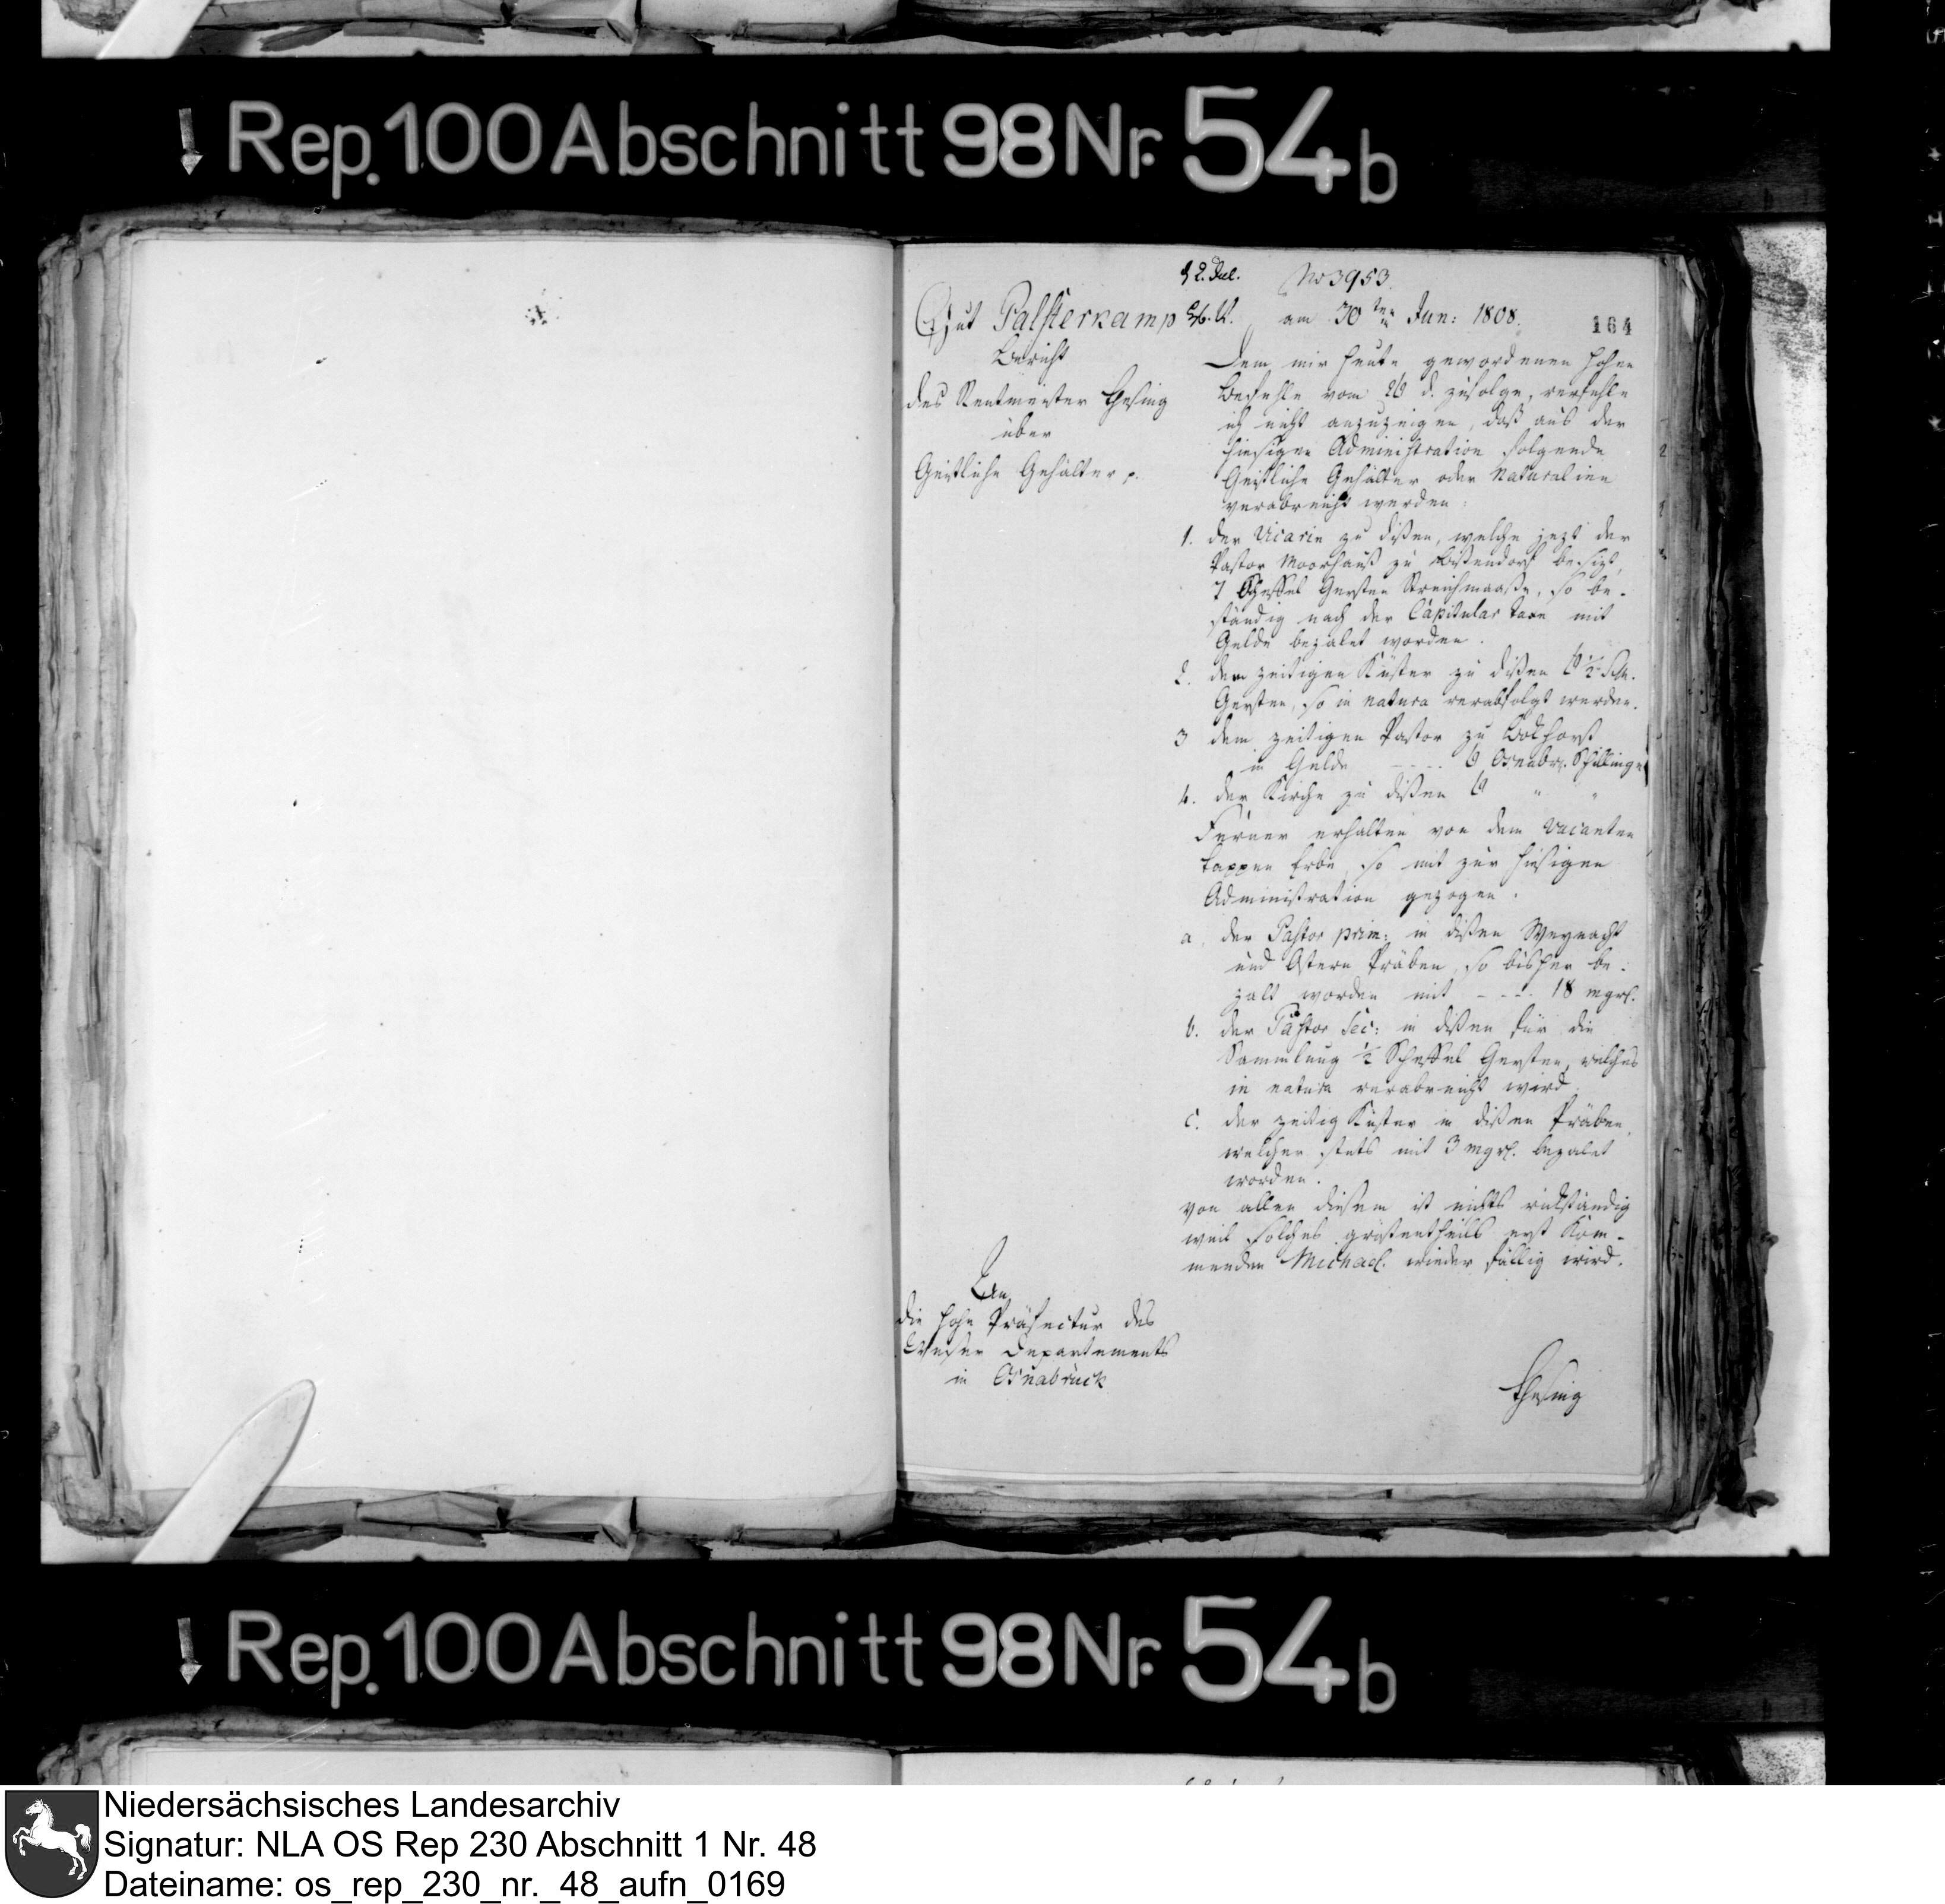 Rep. 100 Abschnitt 98 Nr. 54b
2. Jul. No 3953.
Gut Palsterkamp am 30ten Jun: 1808.
164
Bericht
des Rentmeister Thesing
über
Geistliche Gehälter p.
Dem mir heute gewordenen hohen
Befehle vom 26 d. zufolge, verfehle
ich nicht anzuzeigen, daß aus der
hiesigen Administration folgende
Geistliche Gehälter oder Naturalien
verabreicht werden:
1. der Vicarie zu Dißen, welche jezt der
Pastor Moorhauß zu Bissendorf besizt,
7 Scheffel Gersten Streichmaaße, so be-
ständig nach der Capitular taxe mit
Gelde bezalet worden.
2. dem zeitigen Küster zu Dißen 6 1/2 Sch.
Gersten, so in natura verabfolgt werden.
3 dem zeitigen Pastor zu Bockhorst
in Gelde ---- 6 Osnabr. Schillinge
4. der Kirche zu Dißen 6 " "
Ferner erhalten von dem vacanten
Tappen Erbe, so mit zur hiesigen
Administration gezogen.
a, der Pastor prim: in Dißen Weynacht
und Ostern Präben, so bisher be-
zalt worden mit ---- 18 mgr.
b. der Pastor Sec: in Dißen für die
Sammlung 1/2 Scheffel Gersten, welches
in natura verabreicht wird
c. der zeitig Küster in Dißen Präben,
welcher stets mit 3 mgr. bezalet
worden.
von allen diesem ist nichts rückständig
weil solches gröstentheils erst Kom-
menden Michael. wieder fällig wird.
An
die hohe Präfectur des
Weser Departements
in Osnabrück
Thesing
Rep. 100 Abschnitt 98 Nr. 54b
Niedersächsisches Landesarchiv
Signatur: NLA OS Rep 230 Abschnitt 1 Nr. 48
Dateiname: os_rep_230_nr._48_aufn_0169